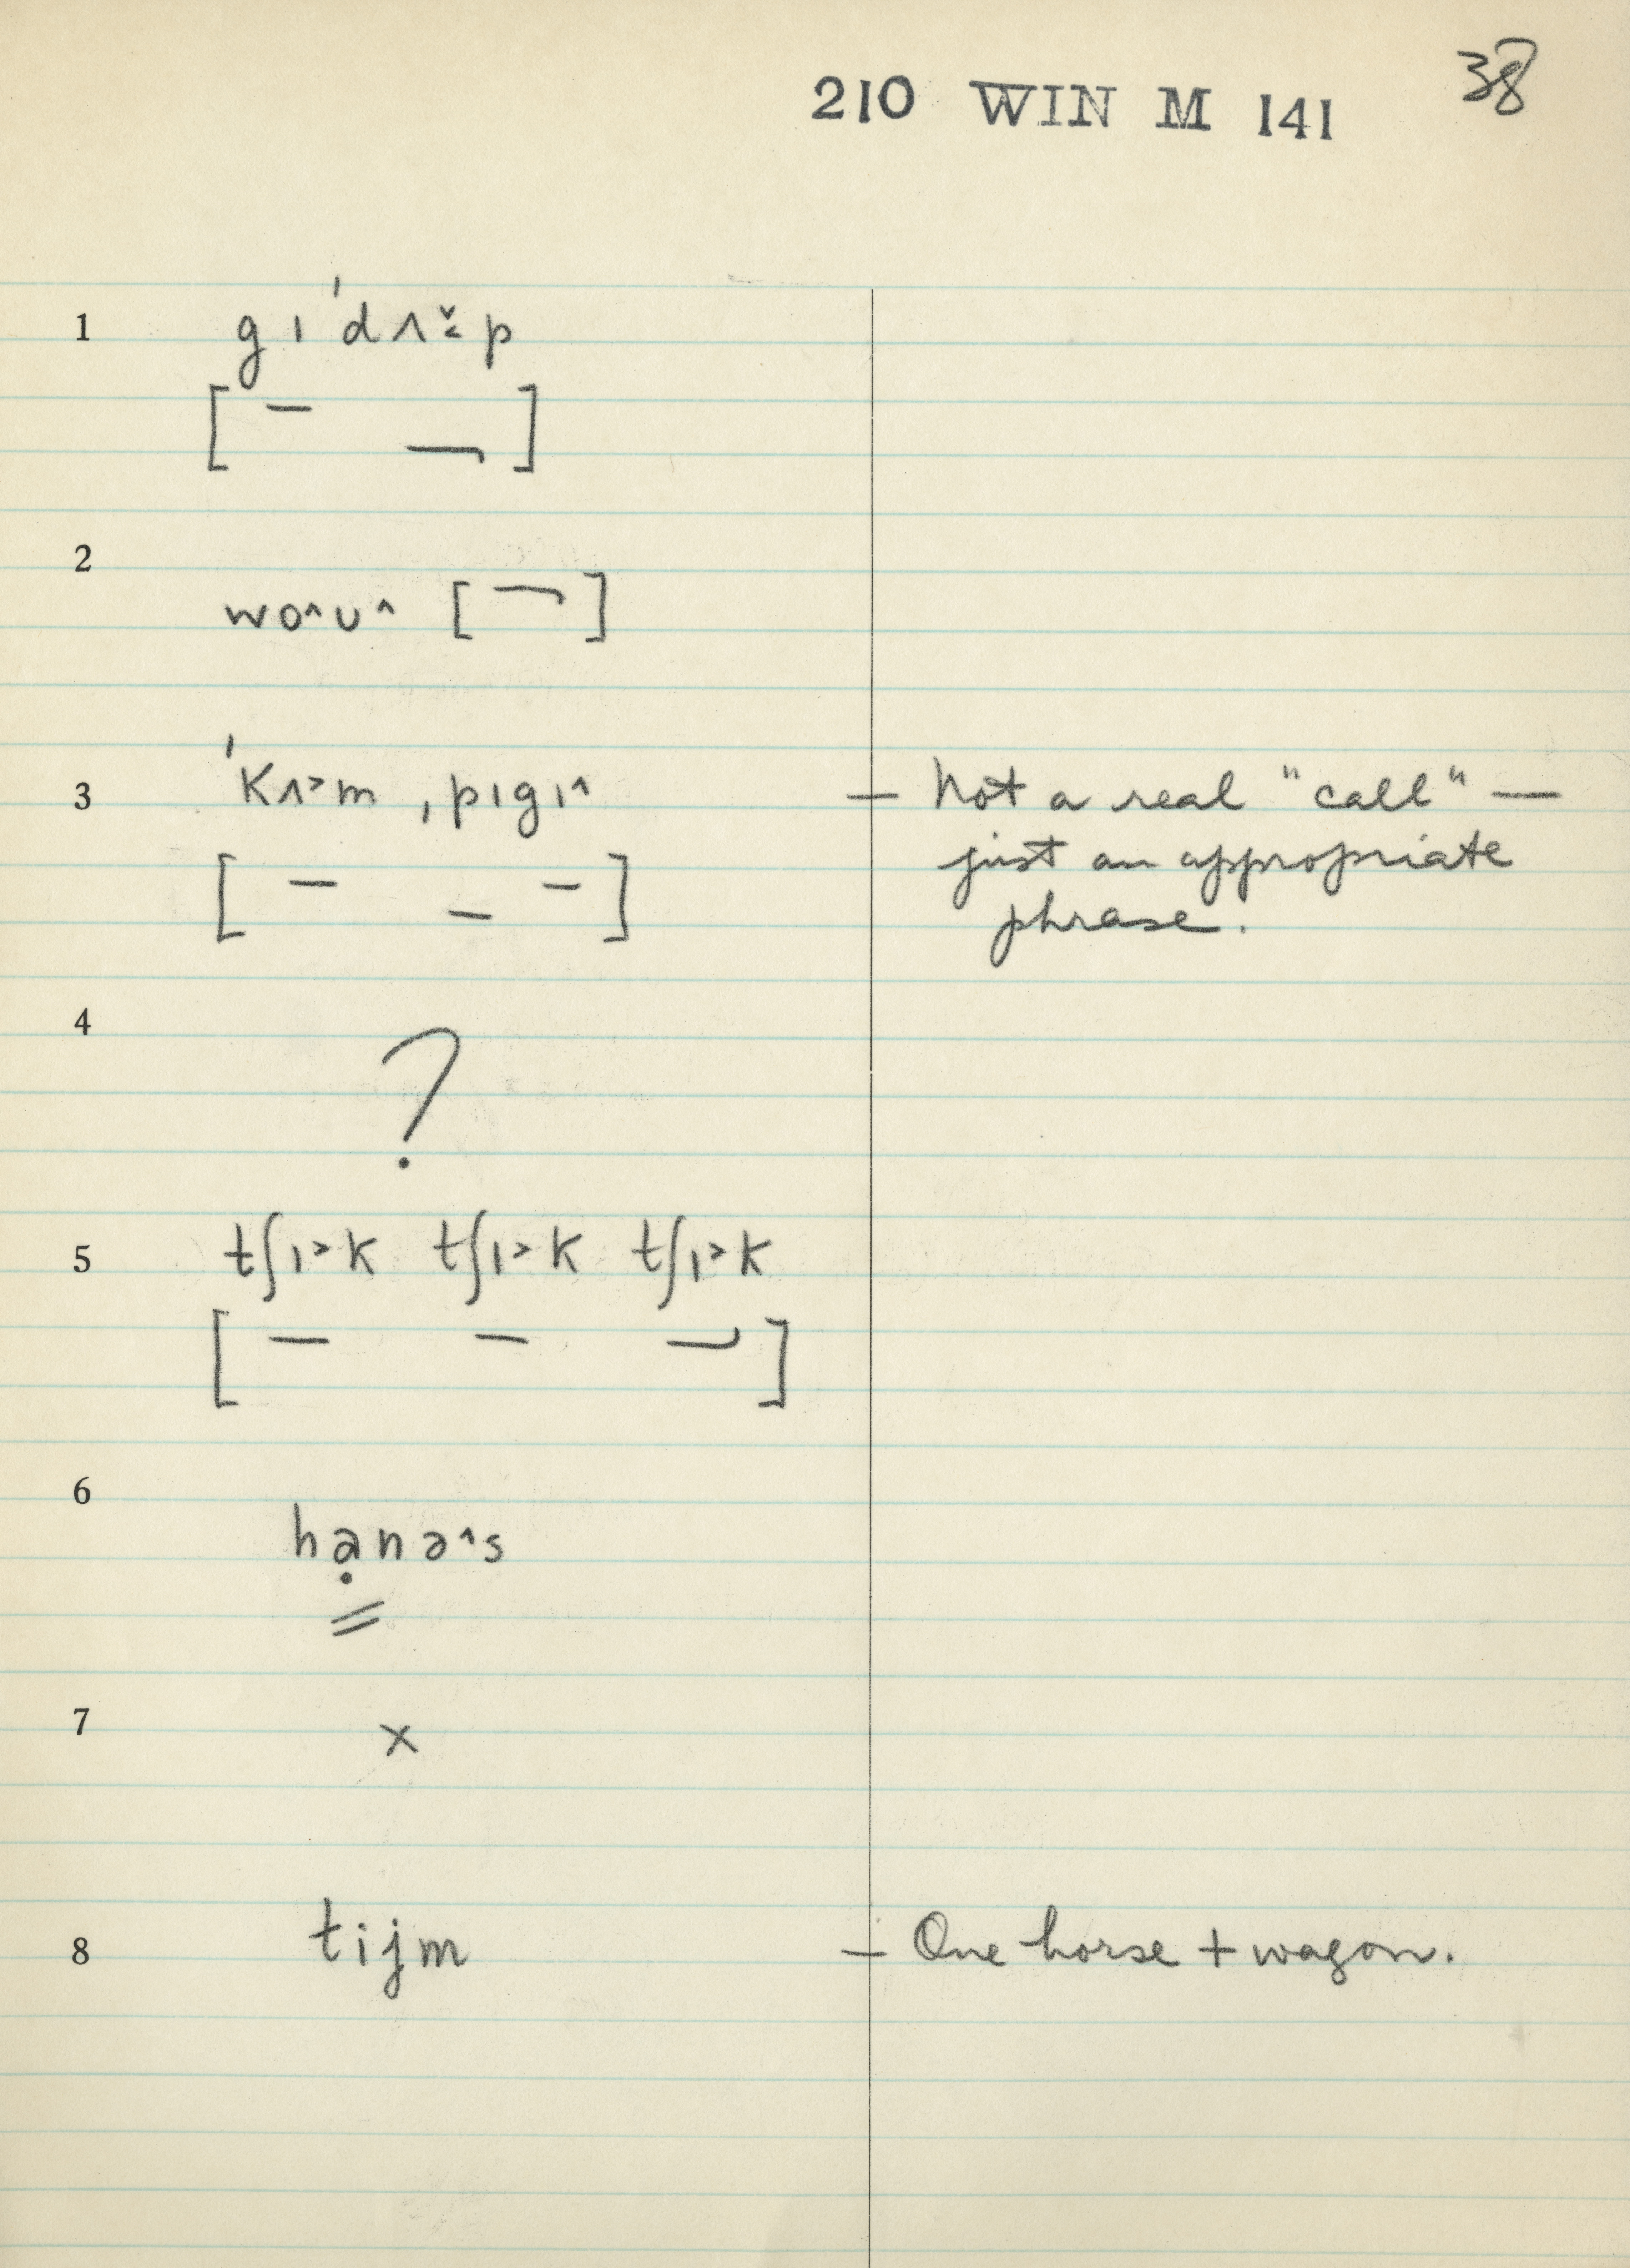 210 WIN M 141 38
1 gɪˈdʌ̬˂p
[ ]
2 wo˄ʊ˄ [ ]
3 ˈkʌ˃m ˌpɪgɪ˄ — Not a real "call" —
[ ] just an appropriate
phrase.
4 ?
5 tʃɪ˃k tʃɪ˃k tʃɪ˃k
[ ]
6 hạnə˄s
7 x
8 tijm — One horse + wagon.